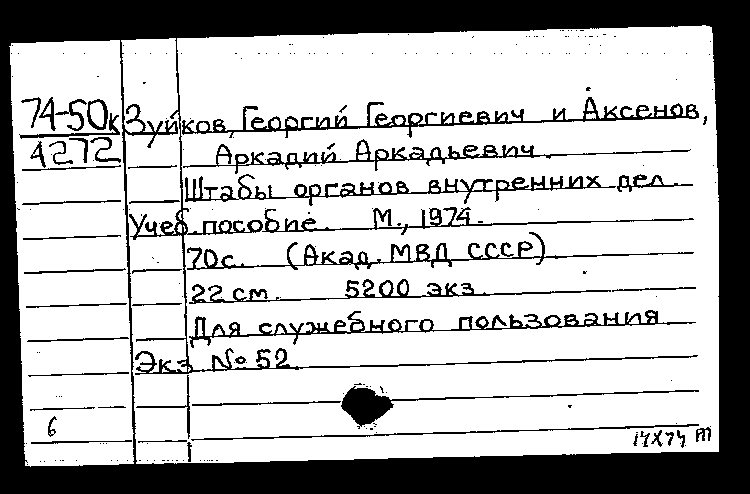 74-50к Зуйков, Георгий Георгиевич и Аксенов,
4272 Аркадий Аркадьевич.
Штабы органов внутренних дел.
Учеб. пособие. М., 1974.
70с. (Акад. МВД СССР)
22 см. 5200 экз.
Для служебного пользования
Экз № 52.
6
14X74